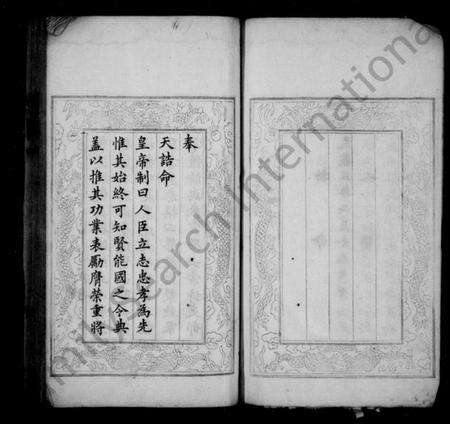 奉
天誥命
皇帝制曰人臣立志忠孝為先
惟其始終可知賢能國之令典
蓋以推其功業表勵膺榮重將
mh Search International